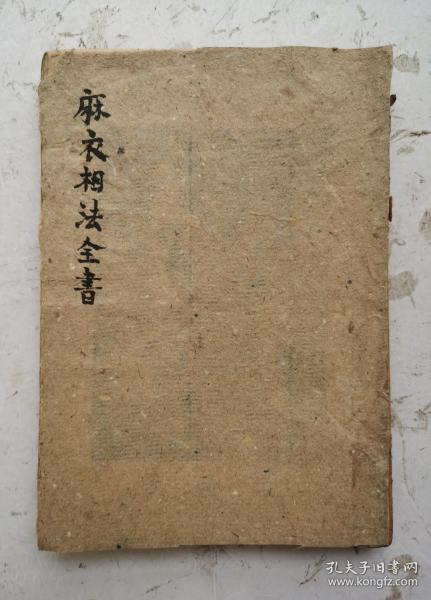 麻衣相法全書
孔夫子旧书网
www.kongfz.com